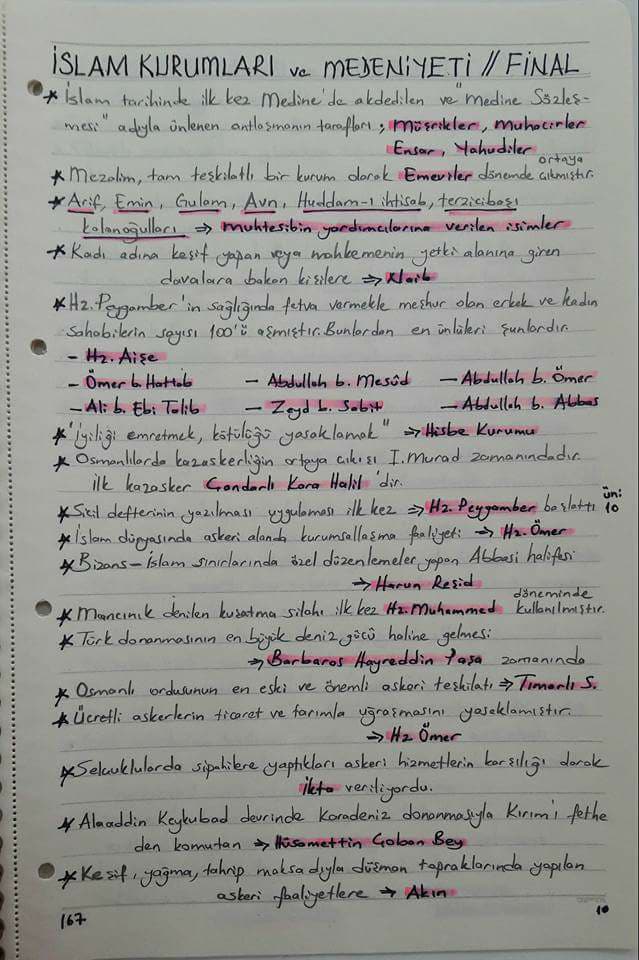 İSLAM KURUMLARI ve MEDENİYETİ // FİNAL
* İslam tarihinde ilk kez Medine'de akdedilen ve "Medine Sözleş-
mesi" adıyla ünlenen antlaşmanın tarafları, Müşrikler, Muhacirler
Ensar, Yahudiler
* Mezalim, tam teşkilatlı bir kurum olarak Emeviler dönemde ortaya çıkmıştır.
* Arif, Emin, Gulam, Avn, Huddam-ı ihtisab, terzicibaşı
kolonoğulları → muhtesibin yardımcılarına verilen isimler
* Kadı adına keşif yapan veya mahkemenin yetki alanına giren
davalara bakan kişilere → Naib
* Hz. Peygamber'in sağlığında fetva vermekle meşhur olan erkek ve kadın
sahabilerin sayısı 100'ü aşmıştır. Bunlardan en ünlüleri şunlardır.
- Hz. Aişe
- Ömer b. Hattab - Abdullah b. Mesûd - Abdullah b. Ömer
- Ali b. Ebi Talib - Zeyd b. Sabit - Abdullah b. Abbas
* "iyiliği emretmek, kötülüğü yasaklamak" → Hisbe Kurumu
* Osmanlılarda kazaskerliğin ortaya çıkışı I. Murad zamanındadır.
İlk kazasker Çandarlı Kara Halil'dir.
* Sicil defterinin yazılması uygulaması ilk kez → Hz. Peygamber başlattı
üni 10
* İslam dünyasında askeri alanda kurumsallaşma faaliyeti → Hz. Ömer
* Bizans-İslam sınırlarında özel düzenlemeler yapan Abbasi halifesi
→ Harun Reşid
* Mancınık denilen kuşatma silahı ilk kez Hz. Muhammed döneminde kullanılmıştır.
* Türk donanmasının en büyük deniz gücü haline gelmesi
→ Barbaros Hayreddin Paşa zamanında
* Osmanlı ordusunun en eski ve önemli askeri teşkilatı → Tımarlı S.
* Ücretli askerlerin ticaret ve tarımla uğraşmasını yasaklamıştır.
→ Hz Ömer
* Selçuklularda sipahilere yaptıkları askeri hizmetlerin karşılığı olarak
İkta veriliyordu.
* Alaaddin Keykubad devrinde Karadeniz donanmasıyla Kırım'ı fethe
den komutan → Hüsamettin Çoban Bey
* Keşif, yağma, tahrip maksadıyla düşman topraklarında yapılan
askeri faaliyetlere → Akın
167 10